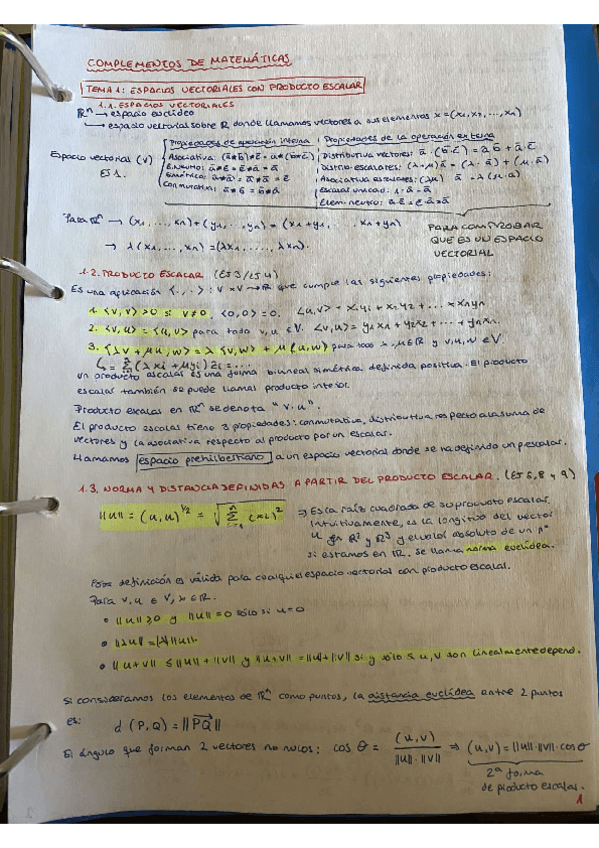 COMPLEMENTOS DE MATEMÁTICAS
TEMA 1: ESPACIOS VECTORIALES CON PRODUCTO ESCALAR
1.1. ESPACIOS VECTORIALES
ℝⁿ → espacio euclídeo
→ espacio vectorial sobre ℝ donde llamamos vectores a sus elementos x=(x₁,x₂,...,xₙ)
Propiedades de operación interna | Propiedades de la operación externa
Espacio vectorial (V)
EJ 1.
Asociativa:
Distributiva vectores:
Distrib. escalares:
Asociativa escalares:
Conmutativa:
Elem. neutro:
Para ℝⁿ → (x₁, ..., xₙ)+(y₁, ..., yₙ) = (x₁+y₁, ..., xₙ+yₙ)
→ λ(x₁, ..., xₙ) = (λx₁, ..., λxₙ).
PARA COMPROBAR
QUE ES UN ESPACIO
VECTORIAL
1.2. PRODUCTO ESCALAR (EJ 3/EJ 4)
Es una aplicación <·,·> : V×V → ℝ que cumple las siguientes propiedades:
1. <v,v> >0 si v≠0, <0,0> = 0.
2. <v,u> = <u,v> para todo v,u ∈ V.
3. <λv + μu, w> = λ<v,w> + μ<u,w> para todo λ,μ∈ℝ y v,u,w ∈ V.
un producto escalar es una forma bilineal simétrica definida positiva. El producto
escalar también se puede llamar producto interior.
Producto escalar en ℝⁿ se denota "v·u".
El producto escalar tiene 3 propiedades: conmutativa, distributiva respecto a la suma de
vectores y la asociativa respecto al producto por un escalar.
Llamamos espacio prehilbertiano a un espacio vectorial donde se ha definido un p. escalar.
1.3. NORMA Y DISTANCIA DEFINIDAS A PARTIR DEL PRODUCTO ESCALAR. (EJ 5, 8 y 9)
||u|| = (u,u)^1/2 = √Σ(xᵢ)²
⇒ Es la raíz cuadrada de su producto escalar.
Intuitivamente, es la longitud del vector
u en ℝ² y ℝ³ y el valor absoluto de un nº
si estamos en ℝ. Se llama norma euclídea.
Esta definición es válida para cualquier espacio vectorial con producto escalar.
Para v,u ∈ V, λ∈ℝ.
• ||u|| ≥ 0 y ||u|| = 0 sólo si u=0
• ||λu|| = |λ| ||u||.
• ||u+v|| ≤ ||u|| + ||v|| y ||u+v|| = ||u|| + ||v|| si y sólo si u,v son linealmente depend.
Si consideramos los elementos de ℝⁿ como puntos, la distancia euclídea entre 2 puntos
es:
d (P,Q) = ||PQ||
El ángulo que forman 2 vectores no nulos: cos θ = (u,v) / ||u||·||v|| ⇒ (u,v) = ||u||·||v||·cosθ
2ª forma
de producto escalar.
1